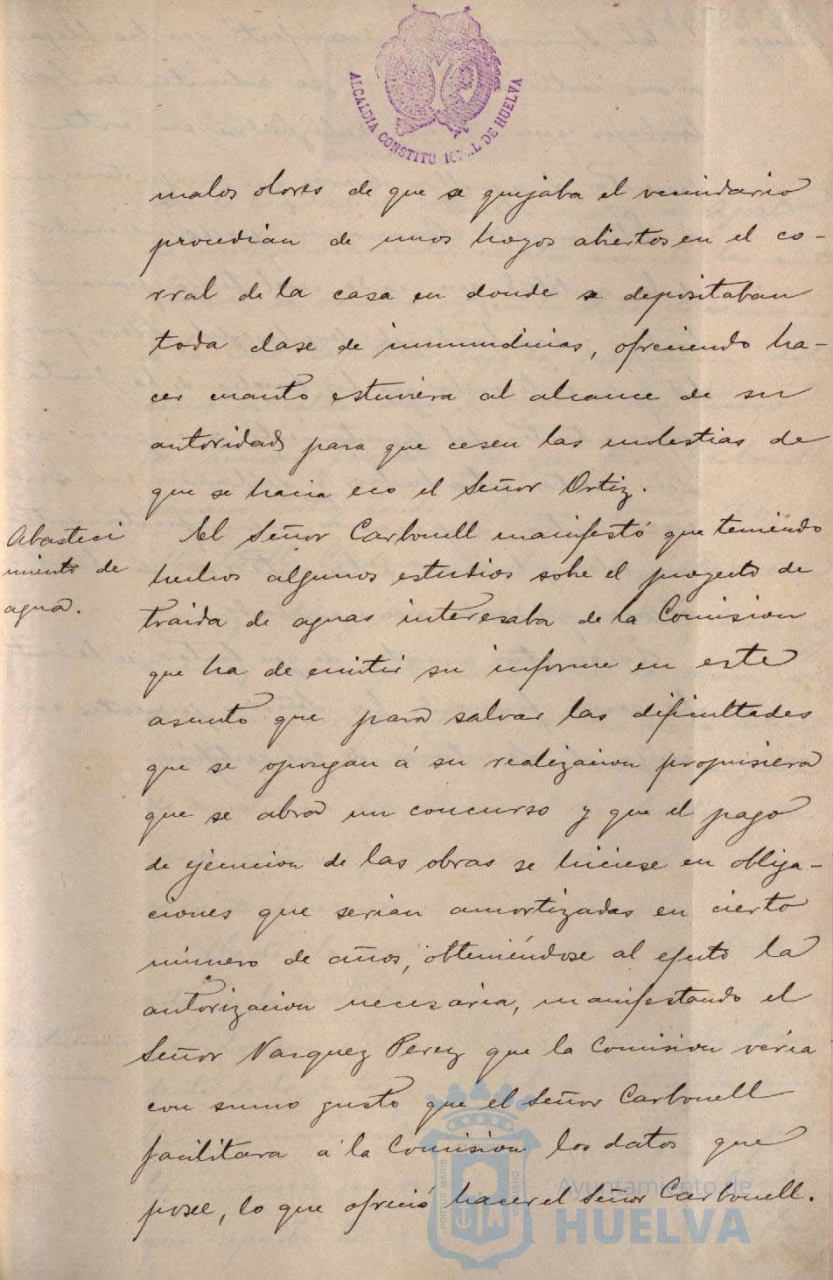 ALCALDIA CONSTITUCIONAL DE HUELVA
malos olores de que se quejaba el vecindario
procedian de unos hoyos abiertos en el co-
rral de la casa en donde se depositaban
toda clase de inmundicias, ofreciendo ha-
cer cuanto estuviera al alcance de su
autoridad para que cesen las molestias de
que se hacia eco el Señor Ortiz.
Abasteci
miento de
agua.
El Señor Carbonell manifestó que teniendo
hechos algunos estudios sobre el proyecto de
traida de aguas interesaba de la Comision
que ha de emitir su informe en este
asunto que para salvar las dificultades
que se opongan á su realizacion propusiera
que se abra un concurso y que el pago
de ejecucion de las obras se hiciese en obliga-
ciones que serian amortizadas en cierto
número de años, obteniéndose al efecto la
autorizacion necesaria, manifestando el
Señor Vazquez Perez que la Comision veria
con sumo gusto que el Señor Carbonell
facilitara á la Comision los datos que
posee, lo que ofreció hacer el Señor Carbonell.
Ayuntamiento de
HUELVA